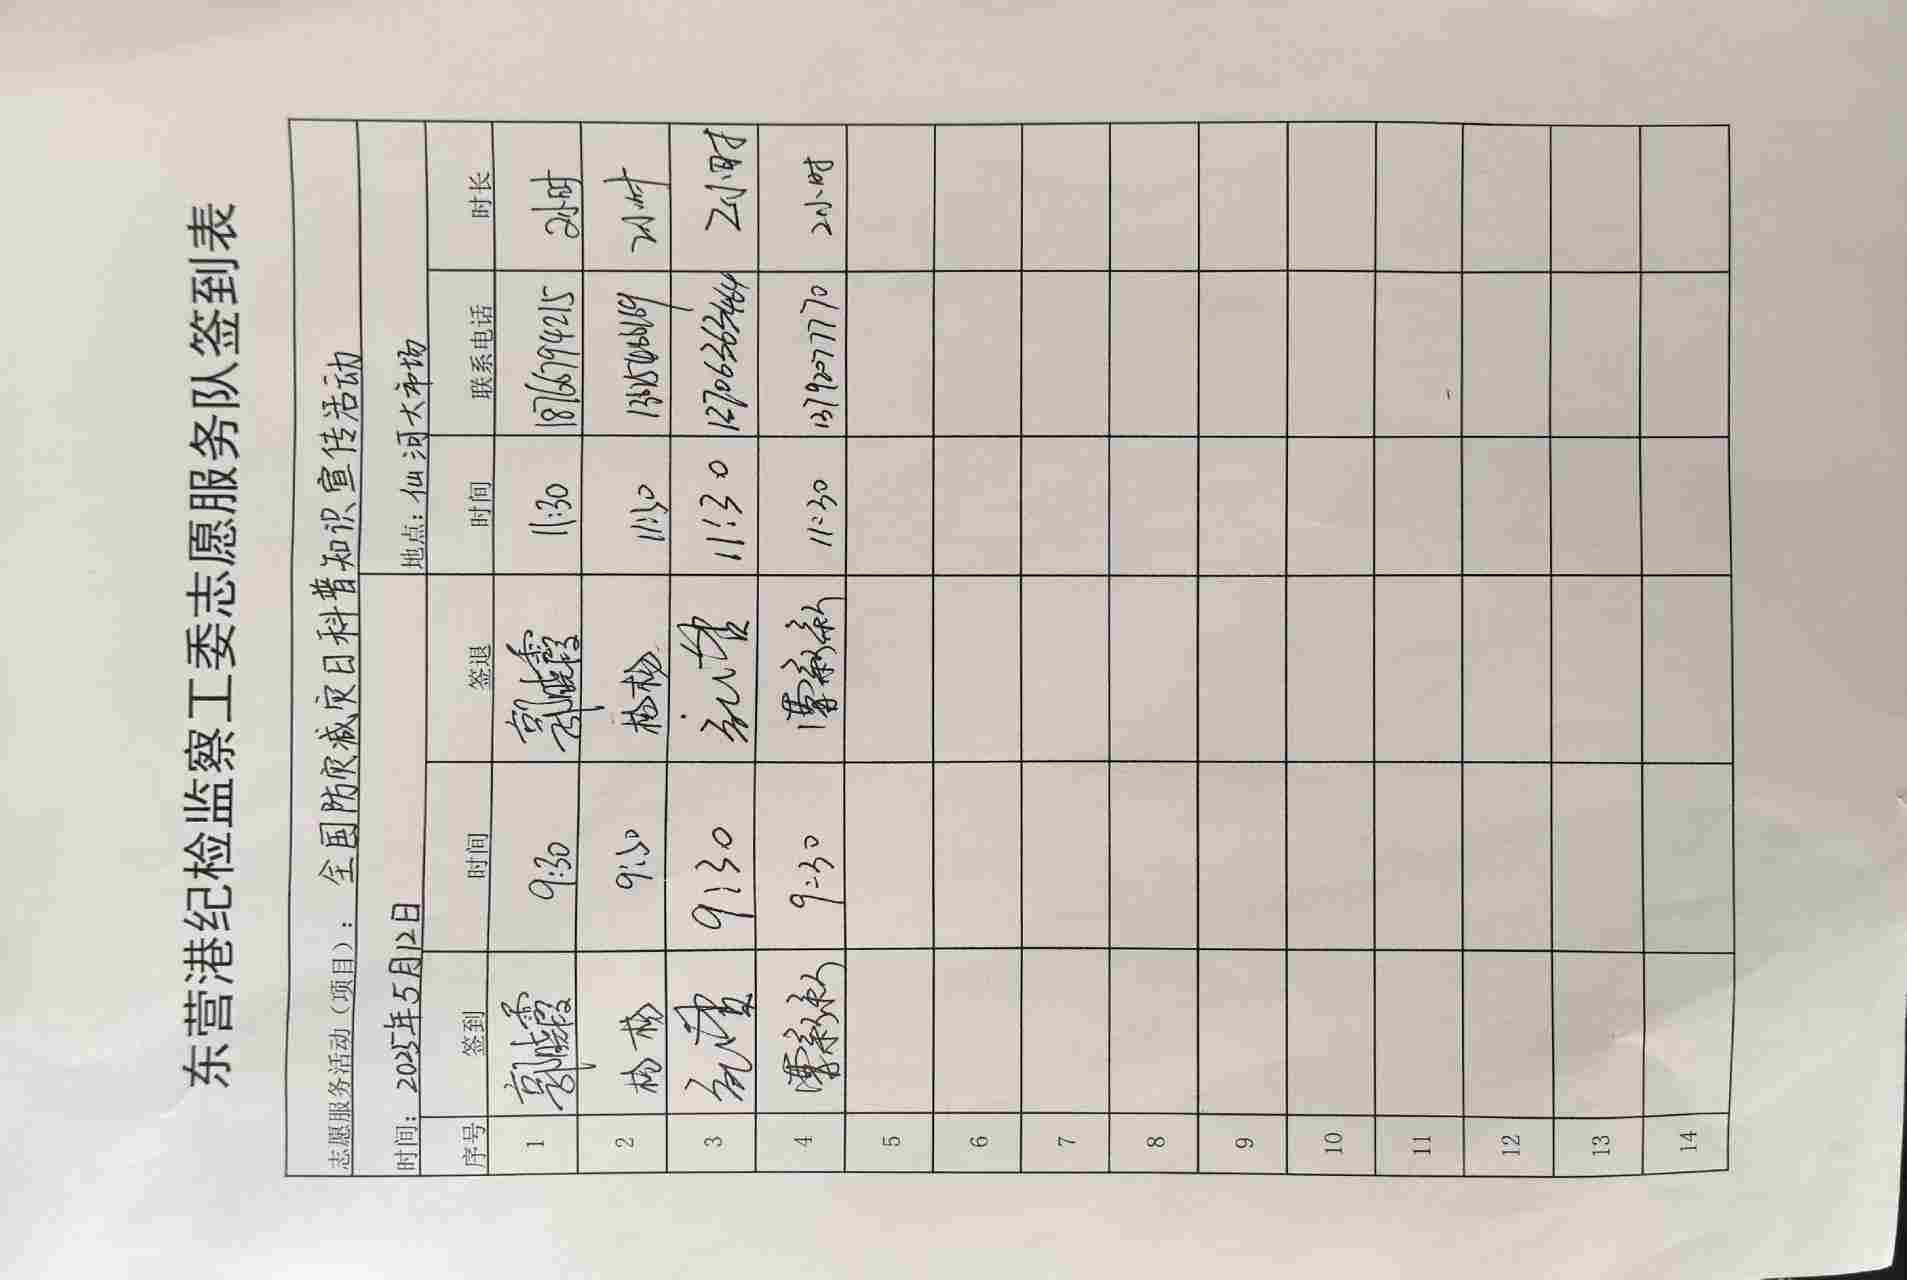 东营港纪检监察工委志愿服务队签到表
志愿服务活动（项目）：全国防灾减灾日科普知识宣传活动
时间：2025年5月12日 地点：仙河大市场
序号 签到 时间 签退 时间 联系电话 时长
1 郭晓霞 9:30 郭晓霞 11:30 18766794215 2小时
2 杨杨 9:30 杨杨 11:30 2小时
3 9:30 11:30 2小时
4 9:30 11:30 13792077770 2小时
5
6
7
8
9
10
11
12
13
14